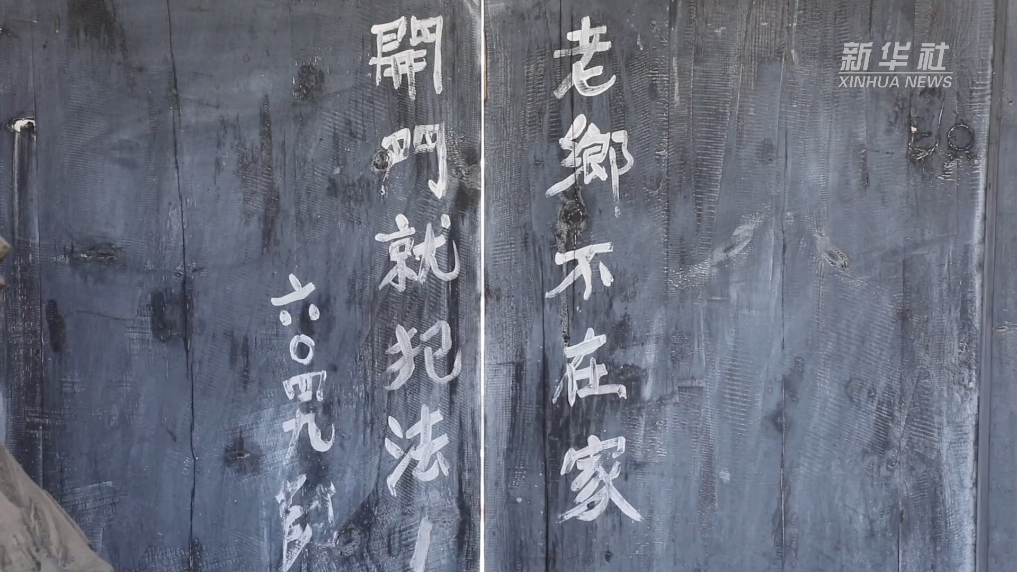 新华社
XINHUA NEWS
老鄉不在家
開門就犯法
六〇四九